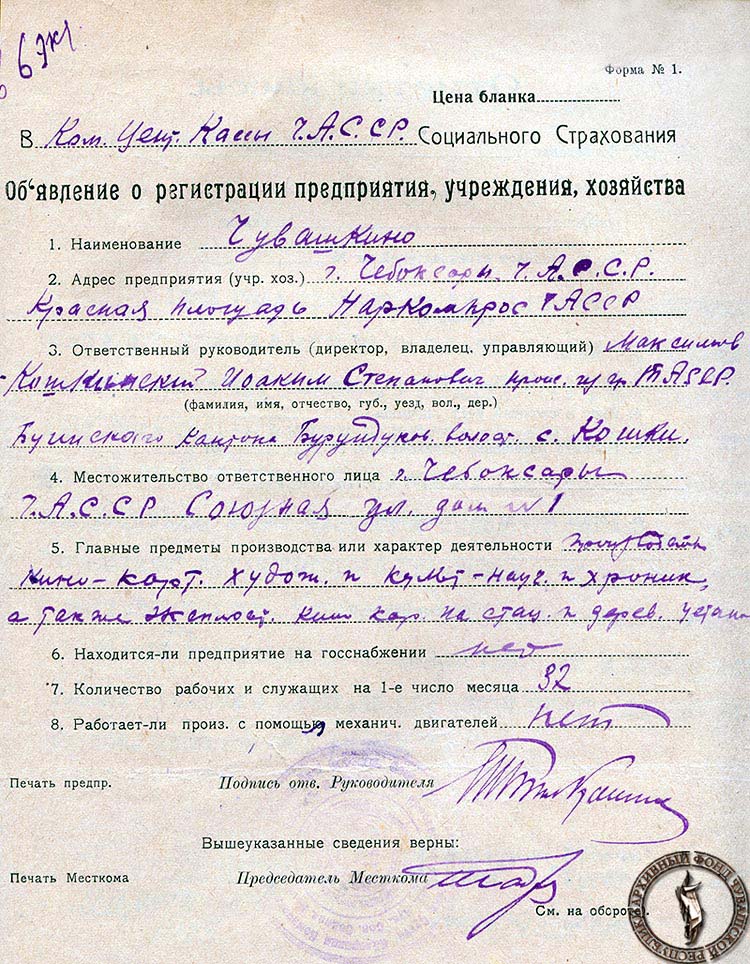 6 экз
Форма № 1.
Цена бланка
В Ком. Цент. Кассы Ч.А.С.СР. Социального Страхования
Об'явление о регистрации предприятия, учреждения, хозяйства
1. Наименование Чувашкино
2. Адрес предприятия (учр. хоз.) г. Чебоксары. Ч.А.С.С.Р.
Красная площадь Наркомпрос ЧАССР
3. Ответственный руководитель (директор, владелец. управляющий) Максимов
-Кошкинский Иоаким Степанович проис. из гр. ТАССР.
(фамилия, имя, отчество, губ., уезд, вол., дер.)
Буинского кантона Бурундуков. волост. с. Кошки.
4. Местожительство ответственного лица г. Чебоксары
Ч.А.С.СР Союзная ул. дом №1
5. Главные предметы производства или характер деятельности
Кино-карт. худож. и культ-науч. и хроник,
а также эксплоат. кино кар. на стац. и дерев. устано
6. Находится-ли предприятие на госснабжении нет
7. Количество рабочих и служащих на 1-е число месяца 32
8. Работает-ли произ. с помощью механич. двигателей нет
Печать предпр.
Подпись отв. Руководителя
Вышеуказанные сведения верны:
Печать Месткома
Председатель Месткома
См. на обороте.
АРХИВНЫЙ ФОНД ЧУВАШСКОЙ РЕСПУБЛИКИ